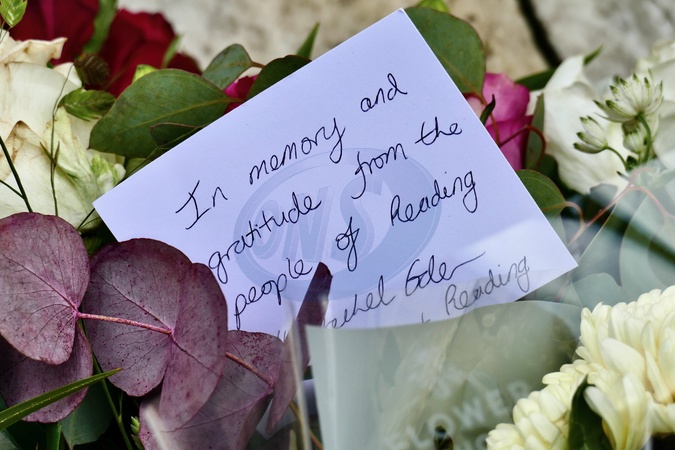 In memory and
gratitude from the
people of Reading
Rachel Eden
Reading
ONS
FLOWER